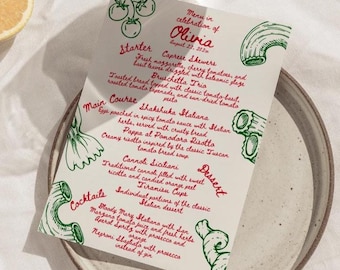 Menu in
celebration of
Olivia
August 22, 2024
Starter
Caprese Skewers
Fresh mozzarella, cherry tomatoes, and
basil leaves drizzled with balsamic glaze
Bruschetta Trio
Toasted bread topped with classic tomato basil,
roasted tomato tapenade, and sun-dried tomato
pesto
Main Course
Shakshuka Italiana
Eggs poached in spicy tomato sauce with Italian
herbs, served with crusty bread
Pappa al Pomodoro Risotto
Creamy risotto inspired by the classic Tuscan
tomato bread soup
Dessert
Cannoli Siciliani
Traditional cannoli filled with sweet
ricotta and candied orange peel
Tiramisu Cups
Individual portions of the classic
Italian dessert
Cocktails
Bloody Mary Italiana with San
Marzano tomato juice and fresh herbs
Aperol Spritz with prosecco and
orange
Negroni Sbagliato with prosecco
instead of gin